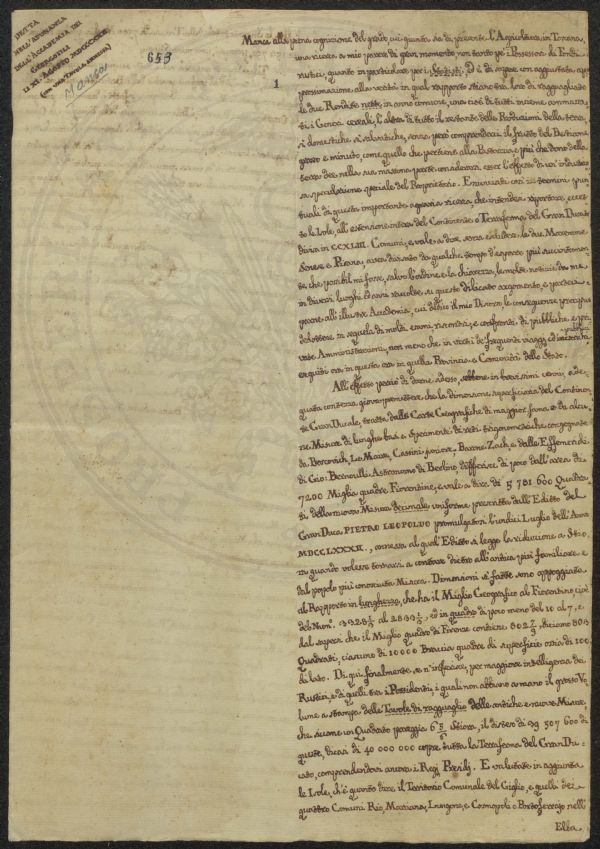 LETTA
NELL'ADUNANZA
DELL'ACCADEMIA DEI
GEORGOFILI
(CON UNA TAVOLA ANNESSA)
Manca
653
1
Manca alla piena cognizione del grado, cui giunta sia di presente l'Agricoltura in Toscana,
una ricerca a mio parere di gran momento non tanto pe' i Possessori di Fondi
rustici, quanto in particolare per i D'è di sapere con aggiustata ap-
prossimazione alla verità in qual rapporto stiano tra loro di ragguagliato
le due Rendite nette, in anno comune, una cioè di tutti insieme ammassa-
ti i Generi cereali, l'altra di tutto il restante delle Produzioni della terra,
sì domestiche sì salvatiche, senza però comprenderci il frutto del Bestiame
grosso e minuto, come quello che pertiene alla Pastorizia, e più che dono della
terra dee nella sua massima parte considerarsi esser l'effetto di un'industrio-
sa speculazione speciale del Proprietario. Enunciati così i termini pun-
tuali di questa importante agraria ricerca, che intendesi riportare, eccet-
to le Isole, all'estensione intera del Continente o Terraferma del Gran Ducato
divisa in CCXLIII. Comuni, e vale a dire senza escludere le due Maremme
Senese e Pisana, avea divisato da qualche tempo d'esporre più succintamen-
te che possibil mi fosse, salvo l'ordine e la chiarezza, le molte notizie da me
in diversi luoghi ed anni raccolte su questo delicato argomento, e porteci
pure all'illustre Accademia, cui dedico il mio Discorso, le conseguenze precipue
dedottene in sequela di molti esami, riscontri, e confronti di pubbliche e pri-
vate Amministrazioni, non meno che in virtù de' frequenti viaggi ed
eseguiti ora in questa ora in quella Provincia e Comunità dello Stato.
All'effetto perciò di darne adesso, sebbene in brevissimi cenni, ade-
quata contezza giova premettere che la dimensione superficiaria del Continen-
te Gran Ducale, tratta dalle Carte Geografiche di maggior fama, e da alcu-
ne Misure di lunghe basi e sperimenti di reti trigonometriche consegnate
da Boscovich, Le Maire, Cassini juniore, Barone Zach, e dalle Effemeridi
di Gio: Bernoulli Astronomo di Berlino, differisce di poco dall'area di
7200 Miglia quadre Fiorentine, e vale a dire di 5 781 600 Quadra-
ti della nuova Misura decimale uniforme prescritta dall'Editto del
Gran Duca PIETRO LEOPOLDO promulgato l'undici Luglio dell'Anno
MDCCLXXXII., annessa al qual'Editto si legge la riduzione a Stio-
ra quando volesse tornarsi a contare dietro all'antica più familiare e
dal popolo più conosciuta Misura. Dimensioni sì fatte sono appoggiate
al Rapporto in lunghezza, che ha il Miglio Geografico al Fiorentino, cioè
dal saperci che il Miglio quadro di Firenze contiene 802 7/9, diciamo 803
Quadrati, ciascuno di 10000 Braccia quadre di superficie ossia di 100
di lato. Di qui finalmente, se n'inferisce, per maggiore intelligenza dei
Rustici, e di quelli tra i Possidenti, i quali non abbiano a mano il grosso Vo-
lume a stampa delle Tavole di ragguaglio delle antiche e nuove Misure,
che siccome un Quadrato pareggia 6 5/6 Stiora, il disteso di 39 507 600 di
queste, dicasi di 40 000 000 copre tutta la Terraferma del Gran Du-
cato, comprendendovi ancora i Regj Presidj. E valutate in aggiunta
le Isole, ch'è quanto dire il Territorio Comunale del Giglio, e quelli dei
quattro Comuni Rio, Marciana, Lungone, e Cosmopoli o Portoferrajo nell'
Elba